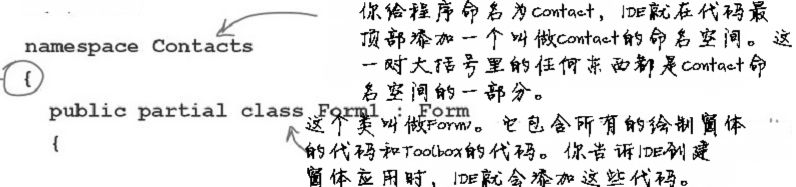 你给程序命名为Contact，IDE就在代码最
顶部添加一个叫做Contact的命名空间。这
一对大括号里的任何东西都是Contact命
名空间的一部分。
namespace Contacts
{
public partial class Form1 : Form
{
这个类叫做Form1。它包含所有的绘制窗体
的代码和Toolbox的代码。你告诉IDE创建
窗体应用时，IDE就会添加这些代码。